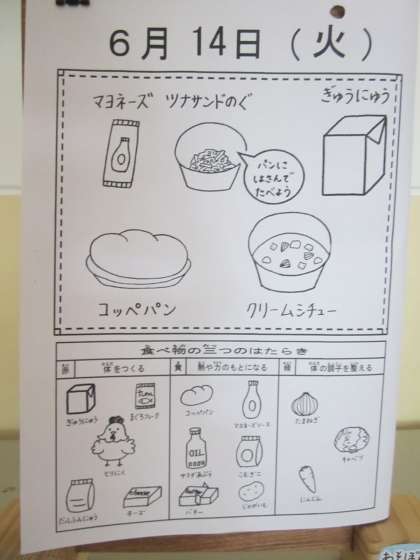 6月 14日 (火)
マヨネーズ ツナサンドのぐ ぎゅうにゅう
パンに
はさんで
たべよう
コッペパン クリームシチュー
食べ物の三つのはたらき
赤 体をつくる 黄 熱や力のもとになる 緑 体の調子を整える
からだ ねつ ちから からだ ちょうし ととの
ぎゅうにゅう まぐろフレーク コッペパン マヨネーズソース たまねぎ
tuna
とりにく サラダあぶら こむぎこ キャベツ
OIL
だっしふんにゅう チーズ バター じゃがいも にんじん
cheese